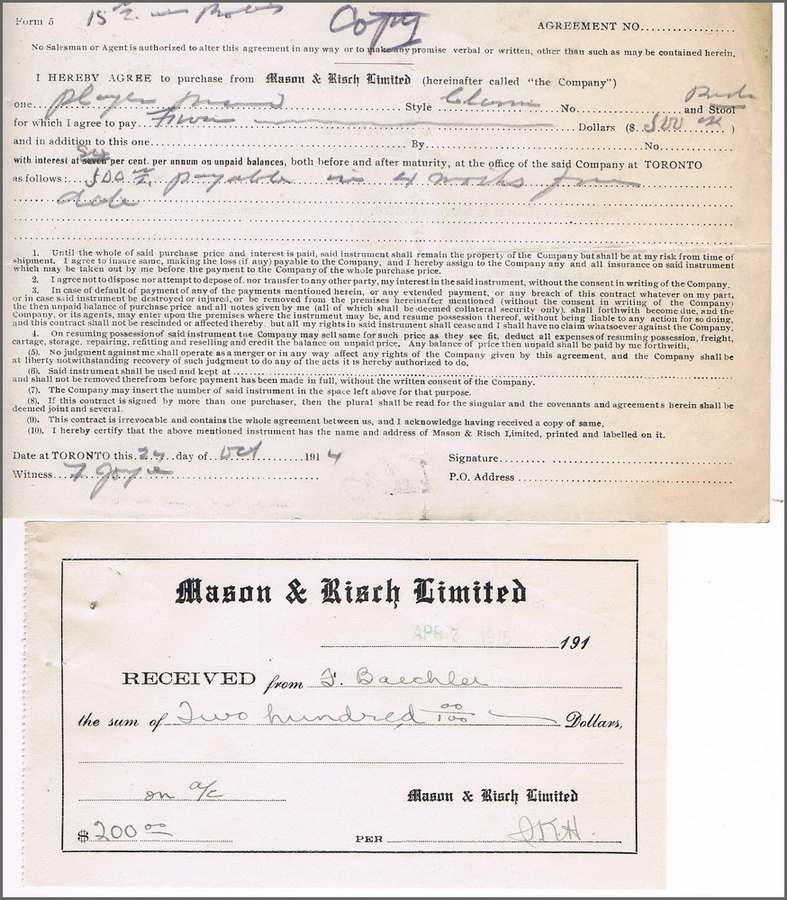 Form 5 Copy AGREEMENT NO
No Salesman or Agent is authorized to alter this agreement in any way or to make any promise verbal or written, other than such as may be contained herein.
I HEREBY AGREE to purchase from Mason & Risch Limited (hereinafter called "the Company")
one player piano Style No. and Stool
for which I agree to pay Dollars ($ 500 )
and in addition to this one By No.
with interest at seven per cent. per annum on unpaid balances, both before and after maturity, at the office of the said Company at TORONTO
as follows: 500 payable in 4 months from
date
1. Until the whole of said purchase price and interest is paid, said instrument shall remain the property of the Company but shall be at my risk from time of
shipment. I agree to insure same, making the loss (if any) payable to the Company, and I hereby assign to the Company any and all insurance on said instrument
which may be taken out by me before the payment to the Company of the whole purchase price.
2. I agree not to dispose nor attempt to dispose of, nor transfer to any other party, my interest in the said instrument, without the consent in writing of the Company.
3. In case of default of payment of any of the payments mentioned herein, or any extended payment, or any breach of this contract whatever on my part,
or in case said instrument be destroyed or injured, or be removed from the premises hereinafter mentioned (without the consent in writing of the Company)
the then unpaid balance of purchase price and all notes given by me (all of which shall be deemed collateral security only), shall forthwith become due, and the
Company, or its agents, may enter upon the premises where the instrument may be, and resume possession thereof, without being liable to any action for so doing,
and this contract shall not be rescinded or affected thereby but all my rights in said instrument shall cease and I shall have no claim whatsoever against the Company.
4. On resuming possession of said instrument the Company may sell same for such price as they see fit, deduct all expenses of resuming possession, freight,
cartage, storage, repairing, refitting and reselling and credit the balance on unpaid price. Any balance of price then unpaid shall be paid by me forthwith.
(5). No judgment against me shall operate as a merger or in any way affect any rights of the Company given by this agreement, and the Company shall be
at liberty notwithstanding recovery of such judgment to do any of the acts it is hereby authorized to do.
(6). Said instrument shall be used and kept at
and shall not be removed therefrom before payment has been made in full, without the written consent of the Company.
(7). The Company may insert the number of said instrument in the space left above for that purpose.
(8). If this contract is signed by more than one purchaser, then the plural shall be read for the singular and the covenants and agreements herein shall be
deemed joint and several.
(9). This contract is irrevocable and contains the whole agreement between us, and I acknowledge having received a copy of same.
(10). I hereby certify that the above mentioned instrument has the name and address of Mason & Risch Limited, printed and labelled on it.
Date at TORONTO this 24 day of Oct 1914 Signature
Witness F Joyce P.O. Address
Mason & Risch Limited
APR 7 1915 191
RECEIVED from F. Baechler
the sum of Two hundred 00/100 Dollars,
on a/c Mason & Risch Limited
$ 200 00 PER J.K.H.